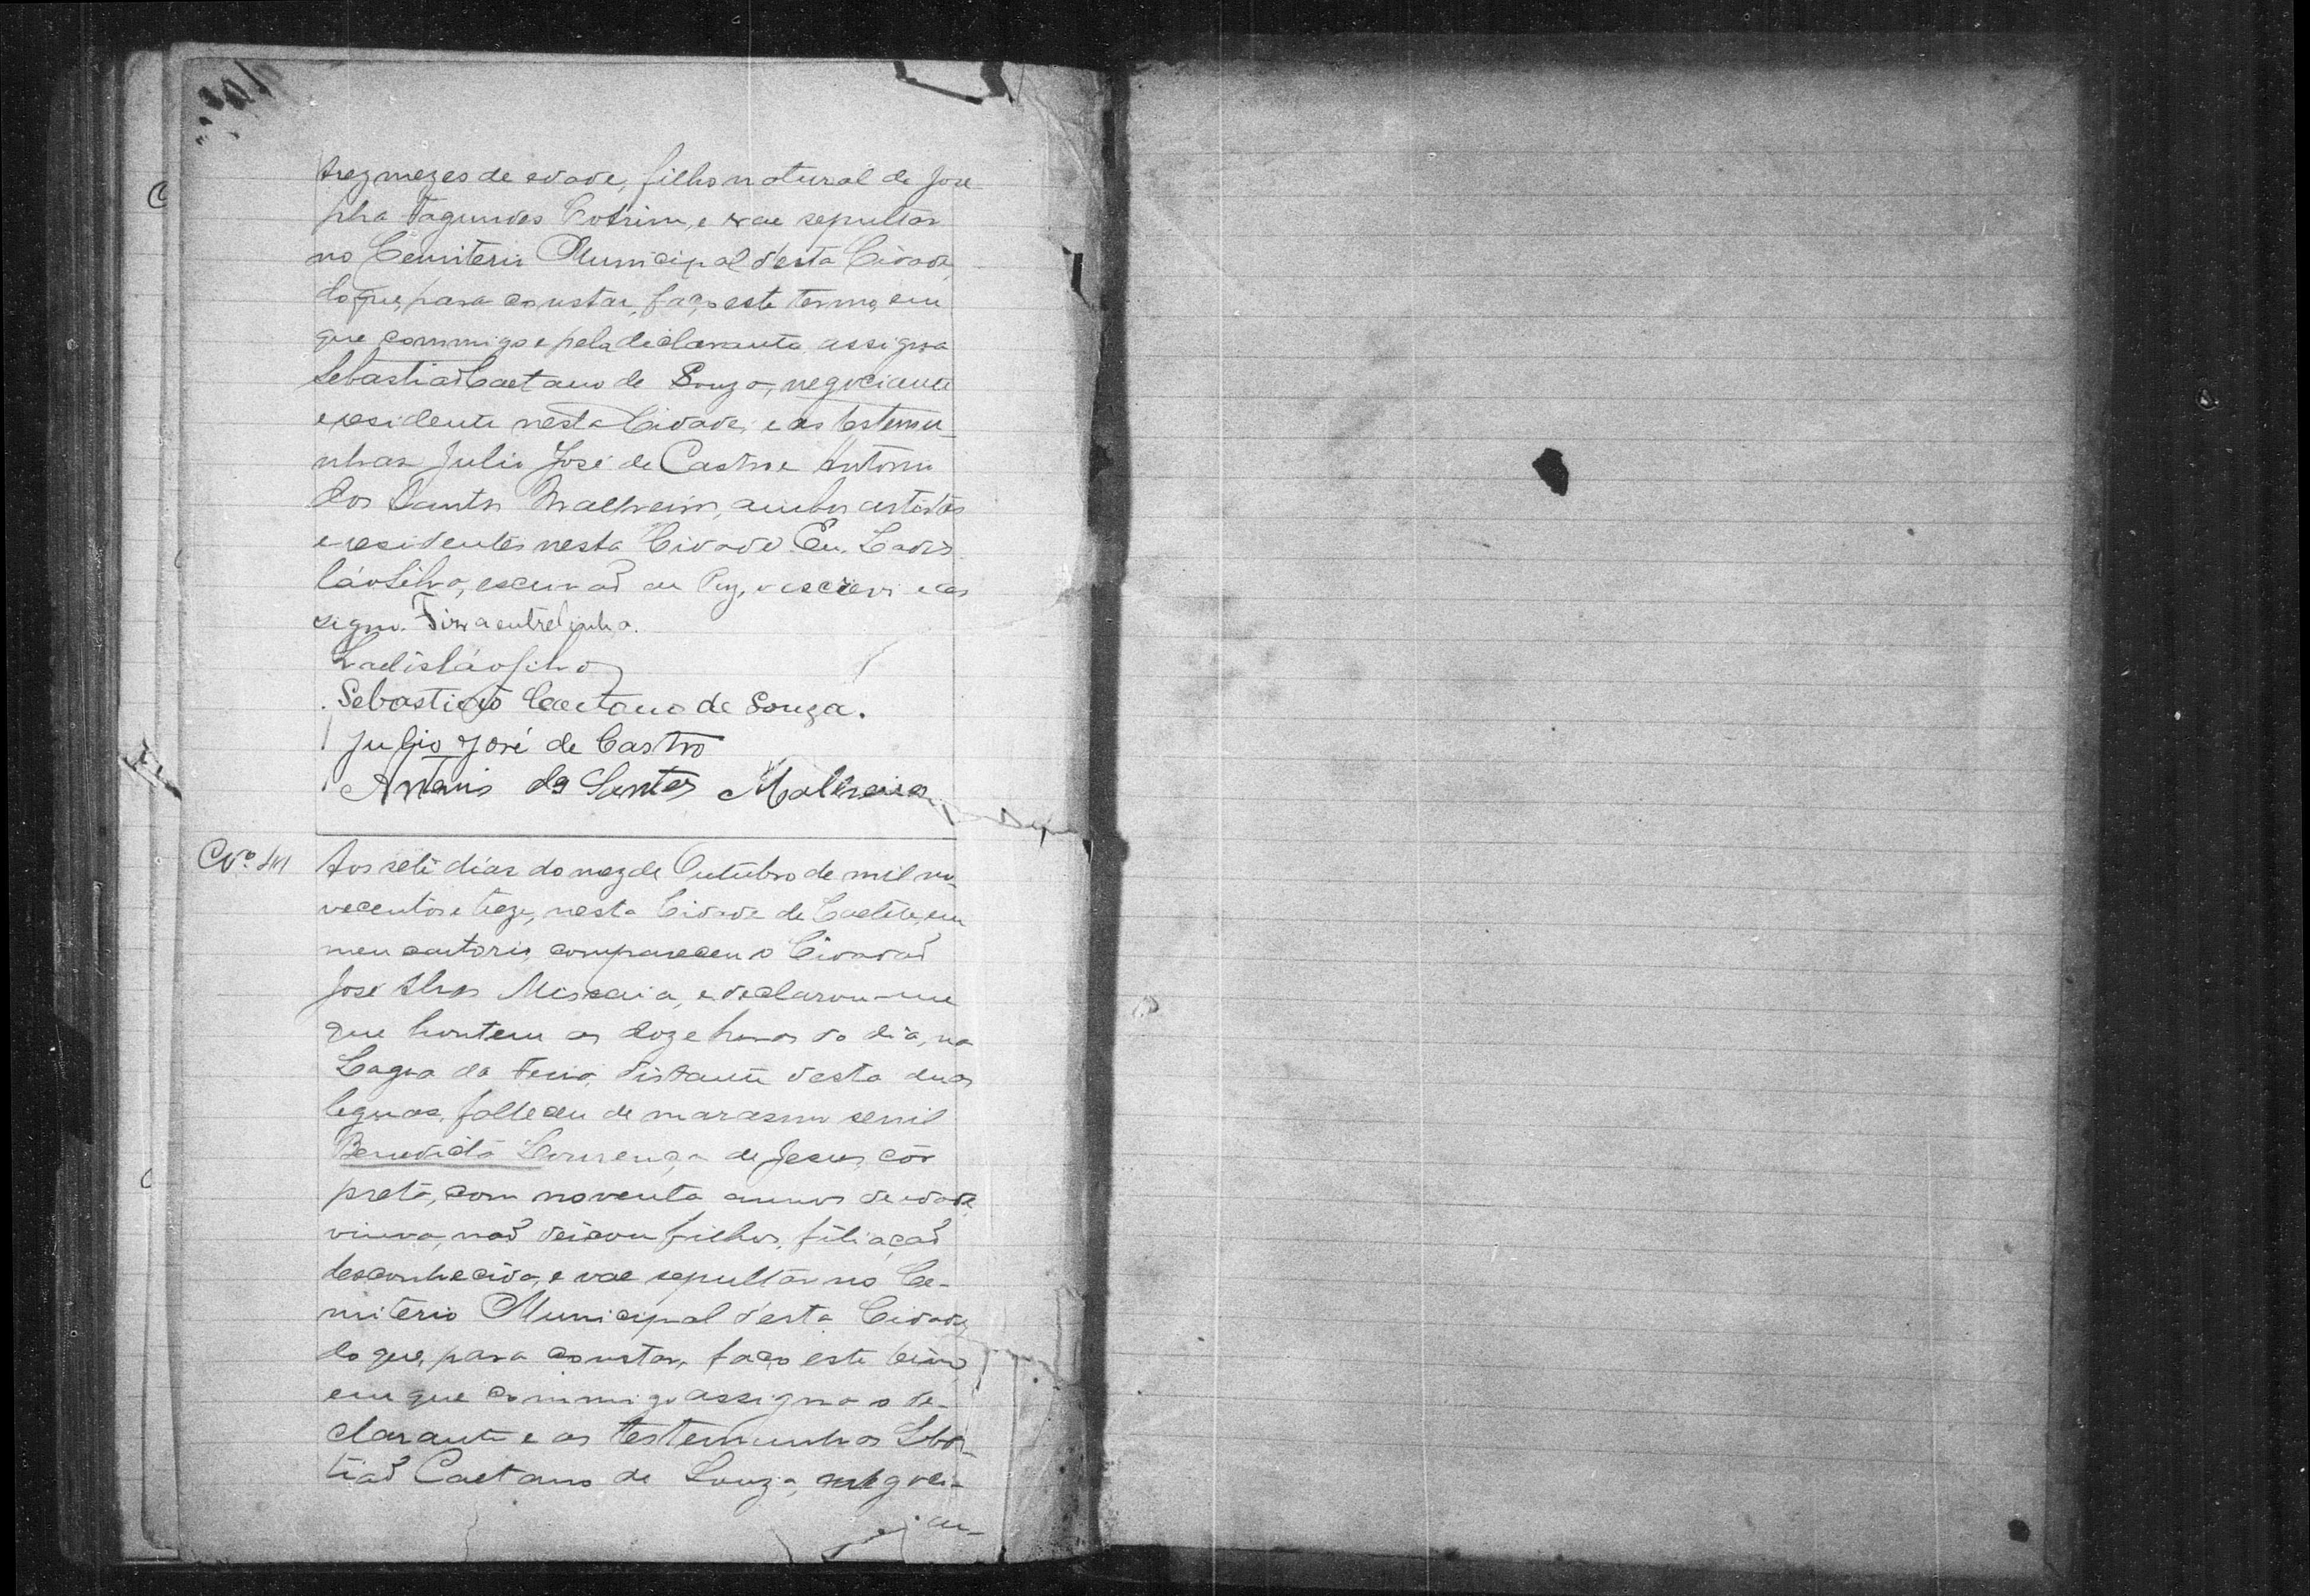 trez mezes de edade, filho natural de Jose-
pha Fagundes Cotrim, e vae sepultar
no Cemiterio Municipal d'esta Cidade,
do que, para constar, faço este termo, em
que commigo e pela declarante assigna
Sebastião Caetano de Souza, negociante
e residente nesta Cidade, e as testemu-
nhas Julio José de Castro e Antonio
dos Santos Malheiro, ambos artistas
e residentes nesta Cidade. Eu, Ladis-
láo Silva, escrivão de Paz, o escrevi e as-
signo. entrelinha.
Ladisláo Silva
Sebastião Caetano de Souza.
Julio José de Castro
Antonio dos Santos Malheiro
Nº
Aos sete dias do mez de Outubro de mil no-
vecentos e treze, nesta Cidade de Caeteté, em
meu cartorio, compareceu o Cidadão
José Alves e declarou-me
que hontem as doze horas do dia, na
Lagoa da distante desta duas
leguas, falleceu de marasmo senil
Benedicta Lourença de Jesus, côr
preta, com noventa annos de edade,
viuva, não deixou filhos, filiação
desconhecida, e vae sepultar no Ce-
miterio Municipal d'esta Cidade,
do que, para constar, faço este termo,
em que commigo assigna o de-
clarante e as testemunhas Sebas-
tião Caetano de Souza, negoci-
an-